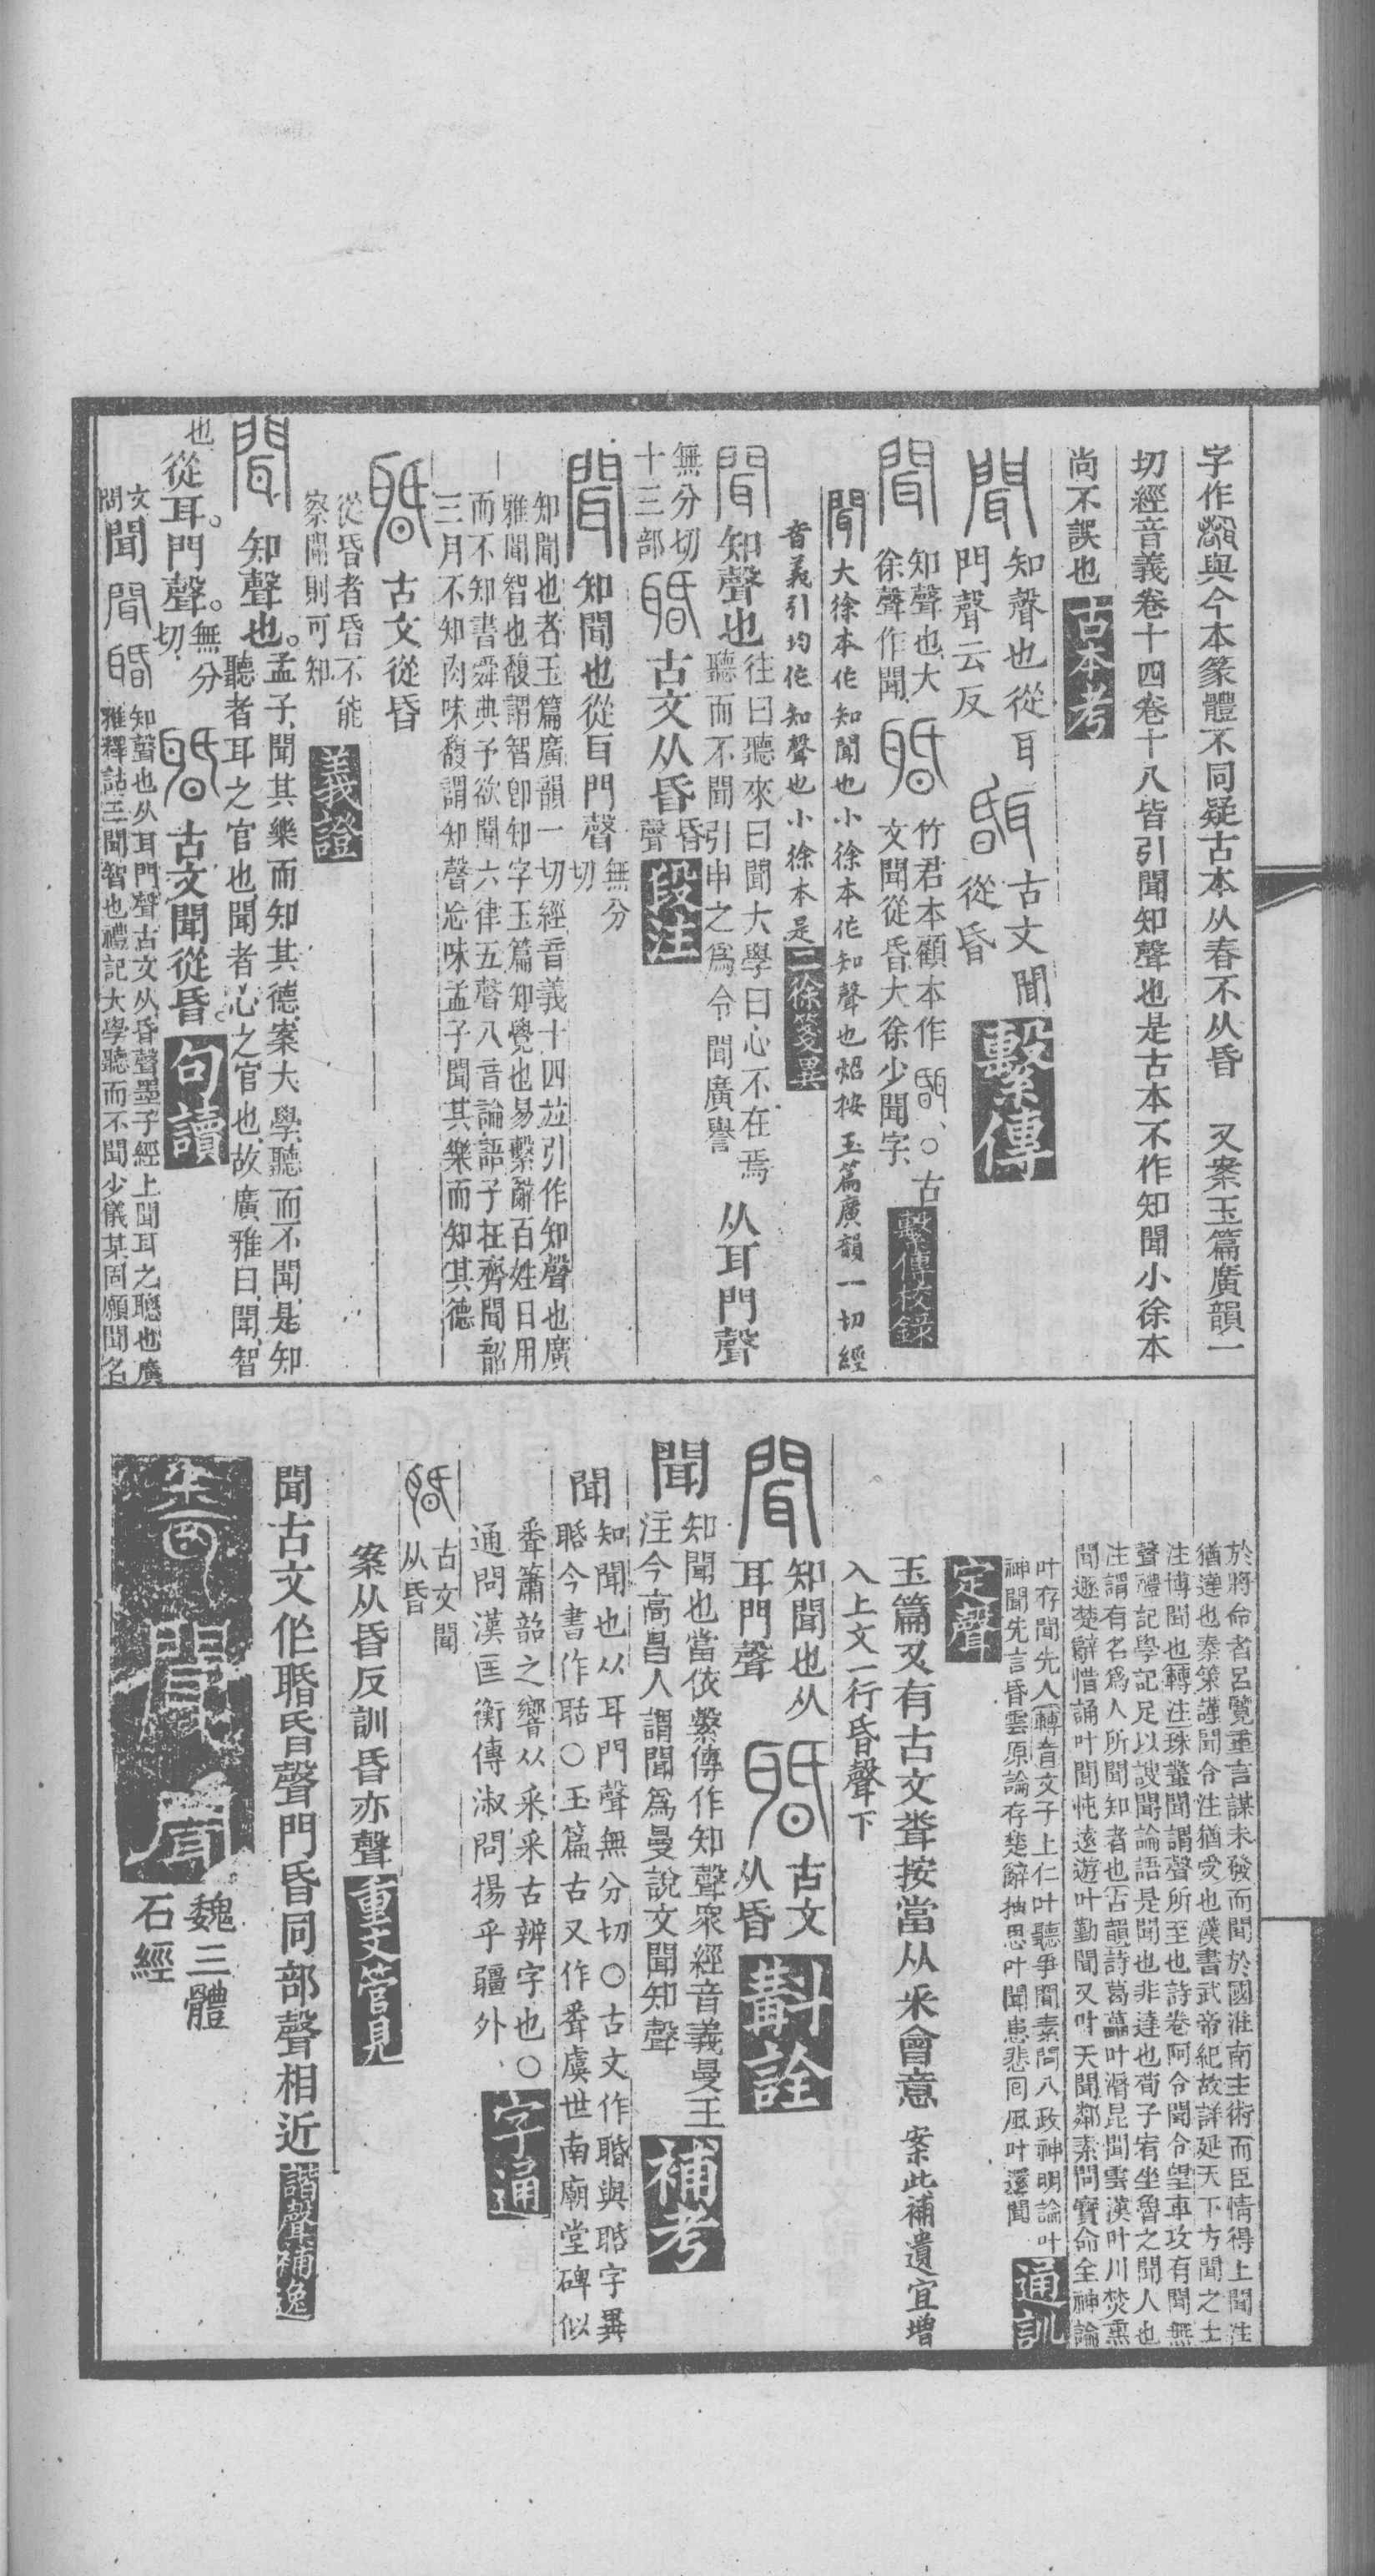 字作與今本篆體不同疑古本从春不从昏　又案玉篇廣韻一
切經音義卷十四卷十八皆引聞知聲也是古本不作知聞小徐本
尚不誤也
古本考
聞
知聲也從耳
門聲云反
古文聞
從昏
繫傳
聞
知聲也大
徐聲作聞
竹君本顧本作、○古
文聞從昏大徐少聞字、
繫傳校錄
聞大徐本作知聞也小徐本作知聲也炤按玉篇廣韻一切經
音義引均作知聲也小徐本是
二徐箋異
聞
知聲也
往曰聽來曰聞大學曰心不在焉
聽而不聞引申之爲令聞廣譽
从耳門聲
無分切
十三部
古文从昏
昏
聲
段注
聞
知聞也從耳門聲
無分
切
知聞也者玉篇廣韻一切經音義十四竝引作知聲也廣
雅聞智也馥謂智卽知字玉篇知覺也易繫辭百姓日用
而不知書舜典予欲聞六律五聲八音論語子在齊聞韶
三月不知肉味馥謂知聲忘味孟子聞其樂而知其德
古文從昏
從昏者昏不能
察聞則可知
義證
聞
知聲也。
孟子、聞其樂而知其德、案大學聽而不聞、是知
聽者耳之官也、聞者心之官也、故廣雅曰、聞、智
也
從耳。門聲。
無分
切、
古文聞從昏。
句讀
文
問
聞
知聲也从耳門聲古文从昏聲墨子經上聞耳之聰也廣
雅釋詁三聞智也禮記大學聽而不聞少儀某固願聞名
於將命者呂覽重言謀未發而聞於國淮南主術而臣情得上聞注
猶達也秦策謹聞令注猶受也漢書武帝紀故詳延天下方聞之士
注博聞也轉注珠鼇聞謂聲所至也詩卷阿令聞令望車攻有聞無
聲禮記學記足以謏聞論語是聞也非達也荀子宥坐魯之聞人也
注謂有名爲人所聞知者也古韻詩葛藟叶漘昆聞雲漢叶川焚熏
聞遯楚辭惜誦叶聞忳遠遊叶勤聞又叶天聞鄰素問寶命全神論
叶存聞先人轉音文子上仁叶聽爭聞素問八政神明論叶
神聞先言昏雲原論存楚辭抽思叶聞患悲回風叶還聞
通訓
定聲
玉篇又有古文䎽按當从釆會意
案此補遺宜增
入上文一行昏聲下
聞
知聞也从
耳門聲
古文
从昏
斠詮
聞
知聞也當依繫傳作知聲衆經音義曼王
注今高昌人謂聞爲曼說文聞知聲
補考
聞
知聞也从耳門聲無分切○古文作䎽與聒字異
聒今書作聒○玉篇古又作䎽虞世南廟堂碑似
䎽簫韶之響从釆釆古辨字也○
通問漢匡衡傳淑問揚乎疆外、
字通
古文聞
从昏
案从昏反訓昏亦聲
重文管見
聞古文作䎽昏聲門昏同部聲相近
諧聲補逸
魏三體
石經